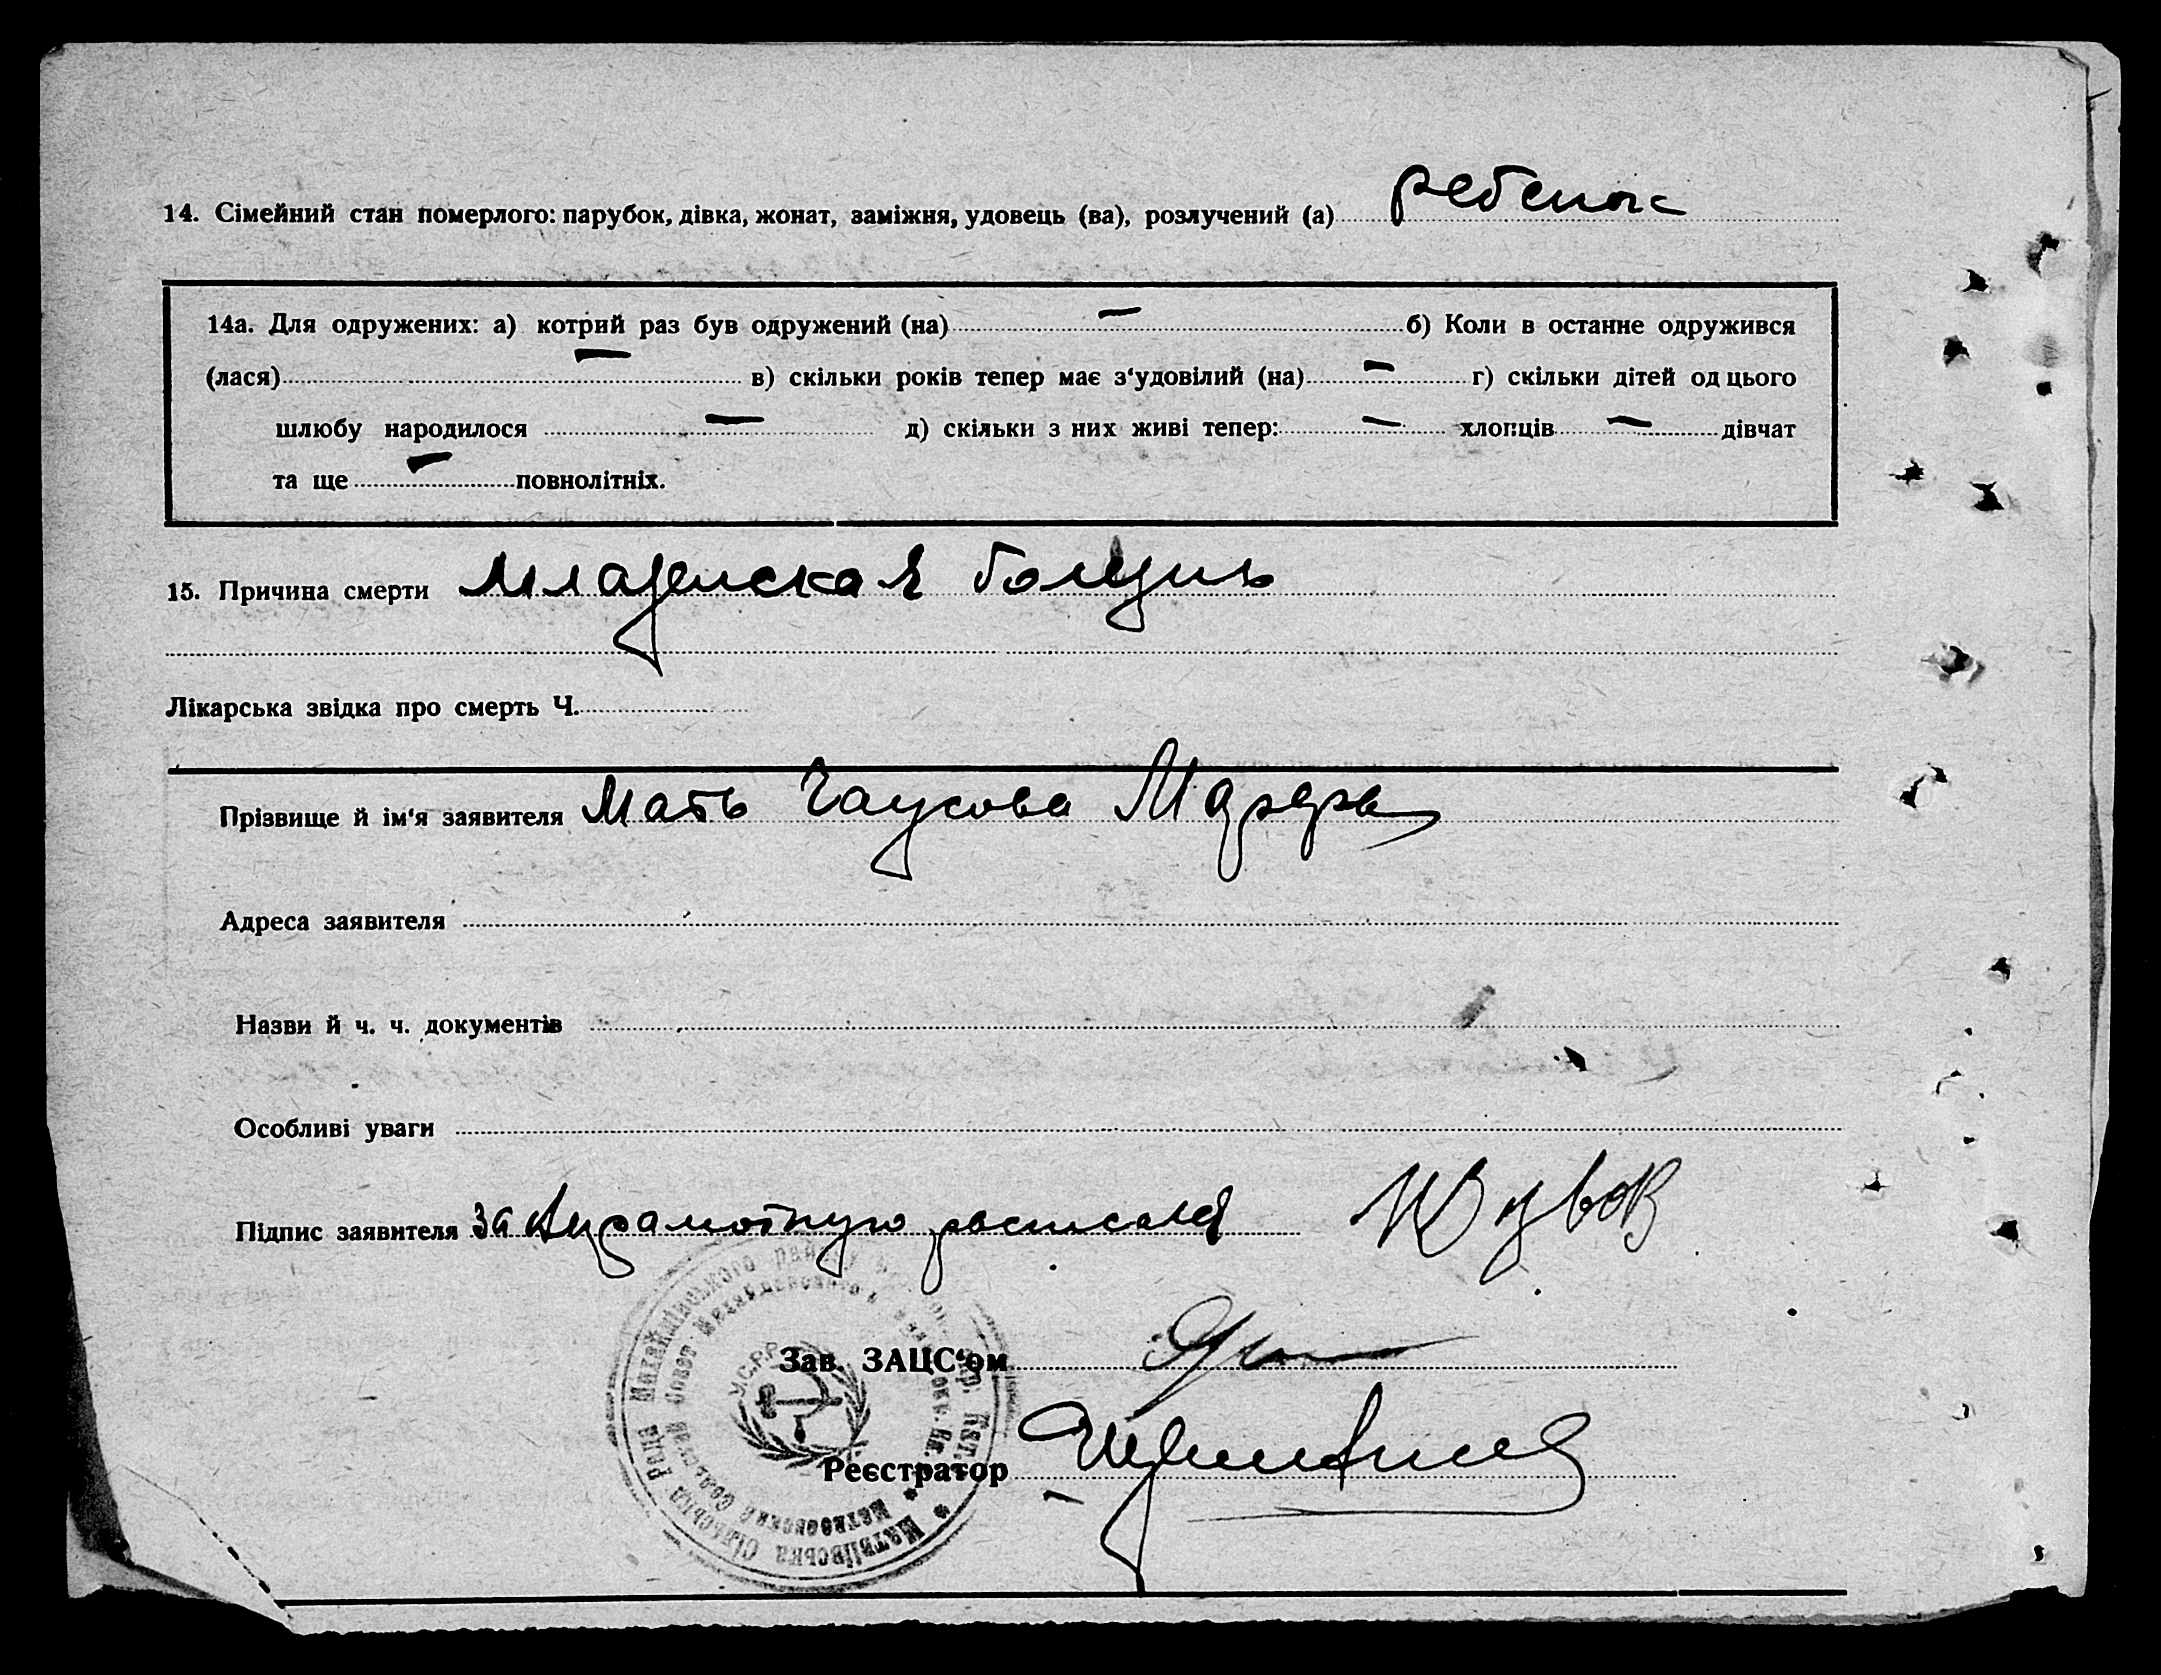 14. Сімейний стан померлого: парубок, дівка, жонат, заміжня, удовець (ва), розлучений (а) ребенок
14а. Для одружених: а) котрий раз був одружений (на) — б) Коли в останнє одружився
(лася) — в) скільки років тепер має з‘удовілий (на) — г) скільки дітей од цього
шлюбу народилося — д) скільки з них живі тепер: — хлопців — дівчат
та ще — повнолітніх.
15. Причина смерти Младенская болезнь
Лікарська звідка про смерть Ч.
Прізвище й ім‘я заявителя Мать Чаусова
Адреса заявителя
Назви й ч. ч. документів
Особливі уваги
Підпис заявителя за неграмотную расписался
Зав. ЗАЦС‘ом
Реєстратор
У.С.Р.Р.
Матвіївська Сільська Рада Михайлівського району
Матвеевский Сельский Совет Михайловского